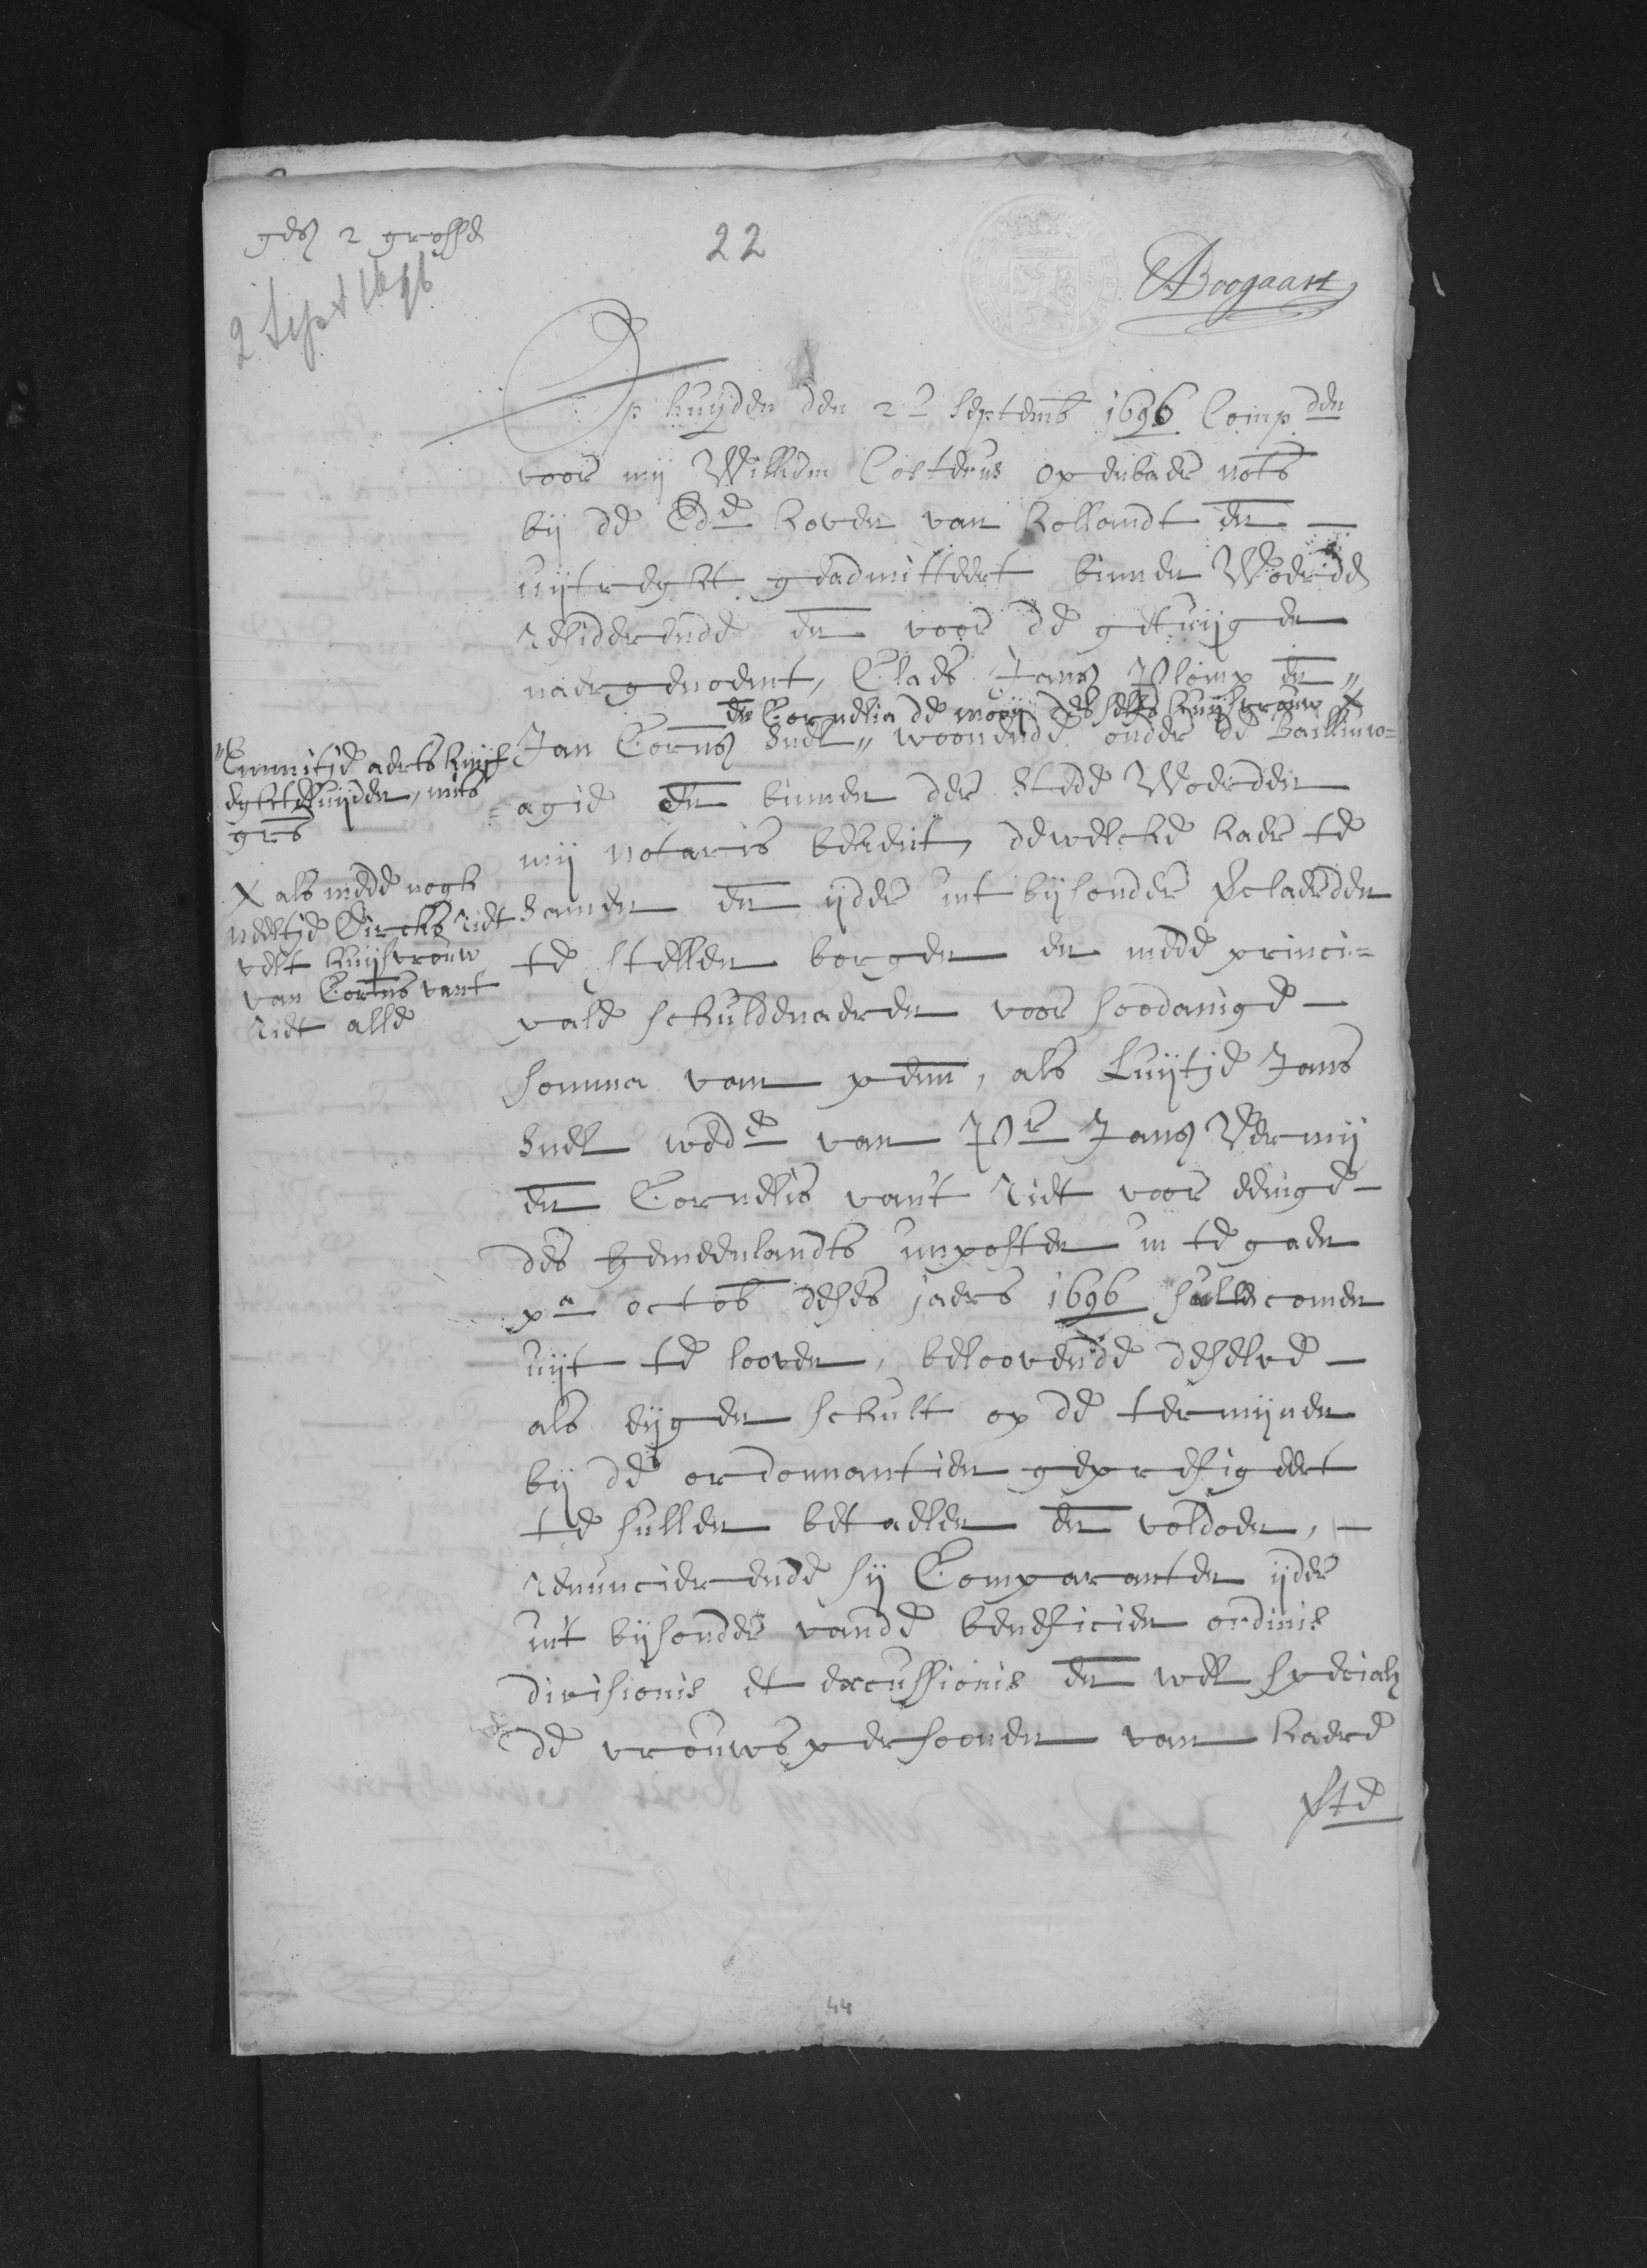 gedn 2 grosse
22
2 Sept 1696
ABoogaart
Op huijden den 2e septemb 1696 Compden
voor mij Willem Costerus openbaer nots
bij de Ede hoven van hollandt en
uijtreght geadmitteert binnen Woerde
residerende en voor de getuijgen
naergenoemt, Claes Jans Plomp en "
en Cornelia de mooij des selfs huijsvrouw X
Jan Corns Snel " woonende onder de Bailliuw=
=agie en binnen der stede Woerden
mij notaris bekent, dewelcke haer te
samen en ijder int bijsonder verclaerden
te stellen borgen en mede princi=
pale schuldenaeren voor soodanige
somma van penn, als Luijtje Jans
Snel wede van Pr Jans Vermij
en Cornelis van't riet voor eenige
des gemeenlandts imposten in te gaen
pa octob deses jaers 1696 sulle comen
uijt te looven, beloovende deselve
als eijgen schult op de termijnen
bij de ordonnantien geprefigeert
te sullen betaelen en voldoen,
renuncierende sij Comparanten ijder
int bijsonder vande beneficien ordinis
divisionis et excussionis en wel special
de vrouwspersoonen van haere
"Emmitje aerts huijs
eghteluijden, mits
grs
X als mede nogh
neeltje Dircks riet
velt huijsvrouw
van Corns vant
riet alle
44